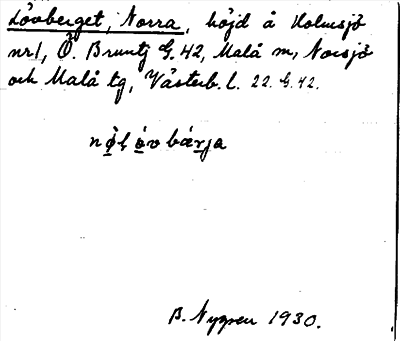 Lövberget, Norra, höjd å Holmsjö
nr 1, Ö. Bruntj G. 42, Malå sn, Norsjö
och Malå tg, Västerb. l. 22 G. 42.
nø̀ḷ ǻv bárja
B. Nygren 1930.